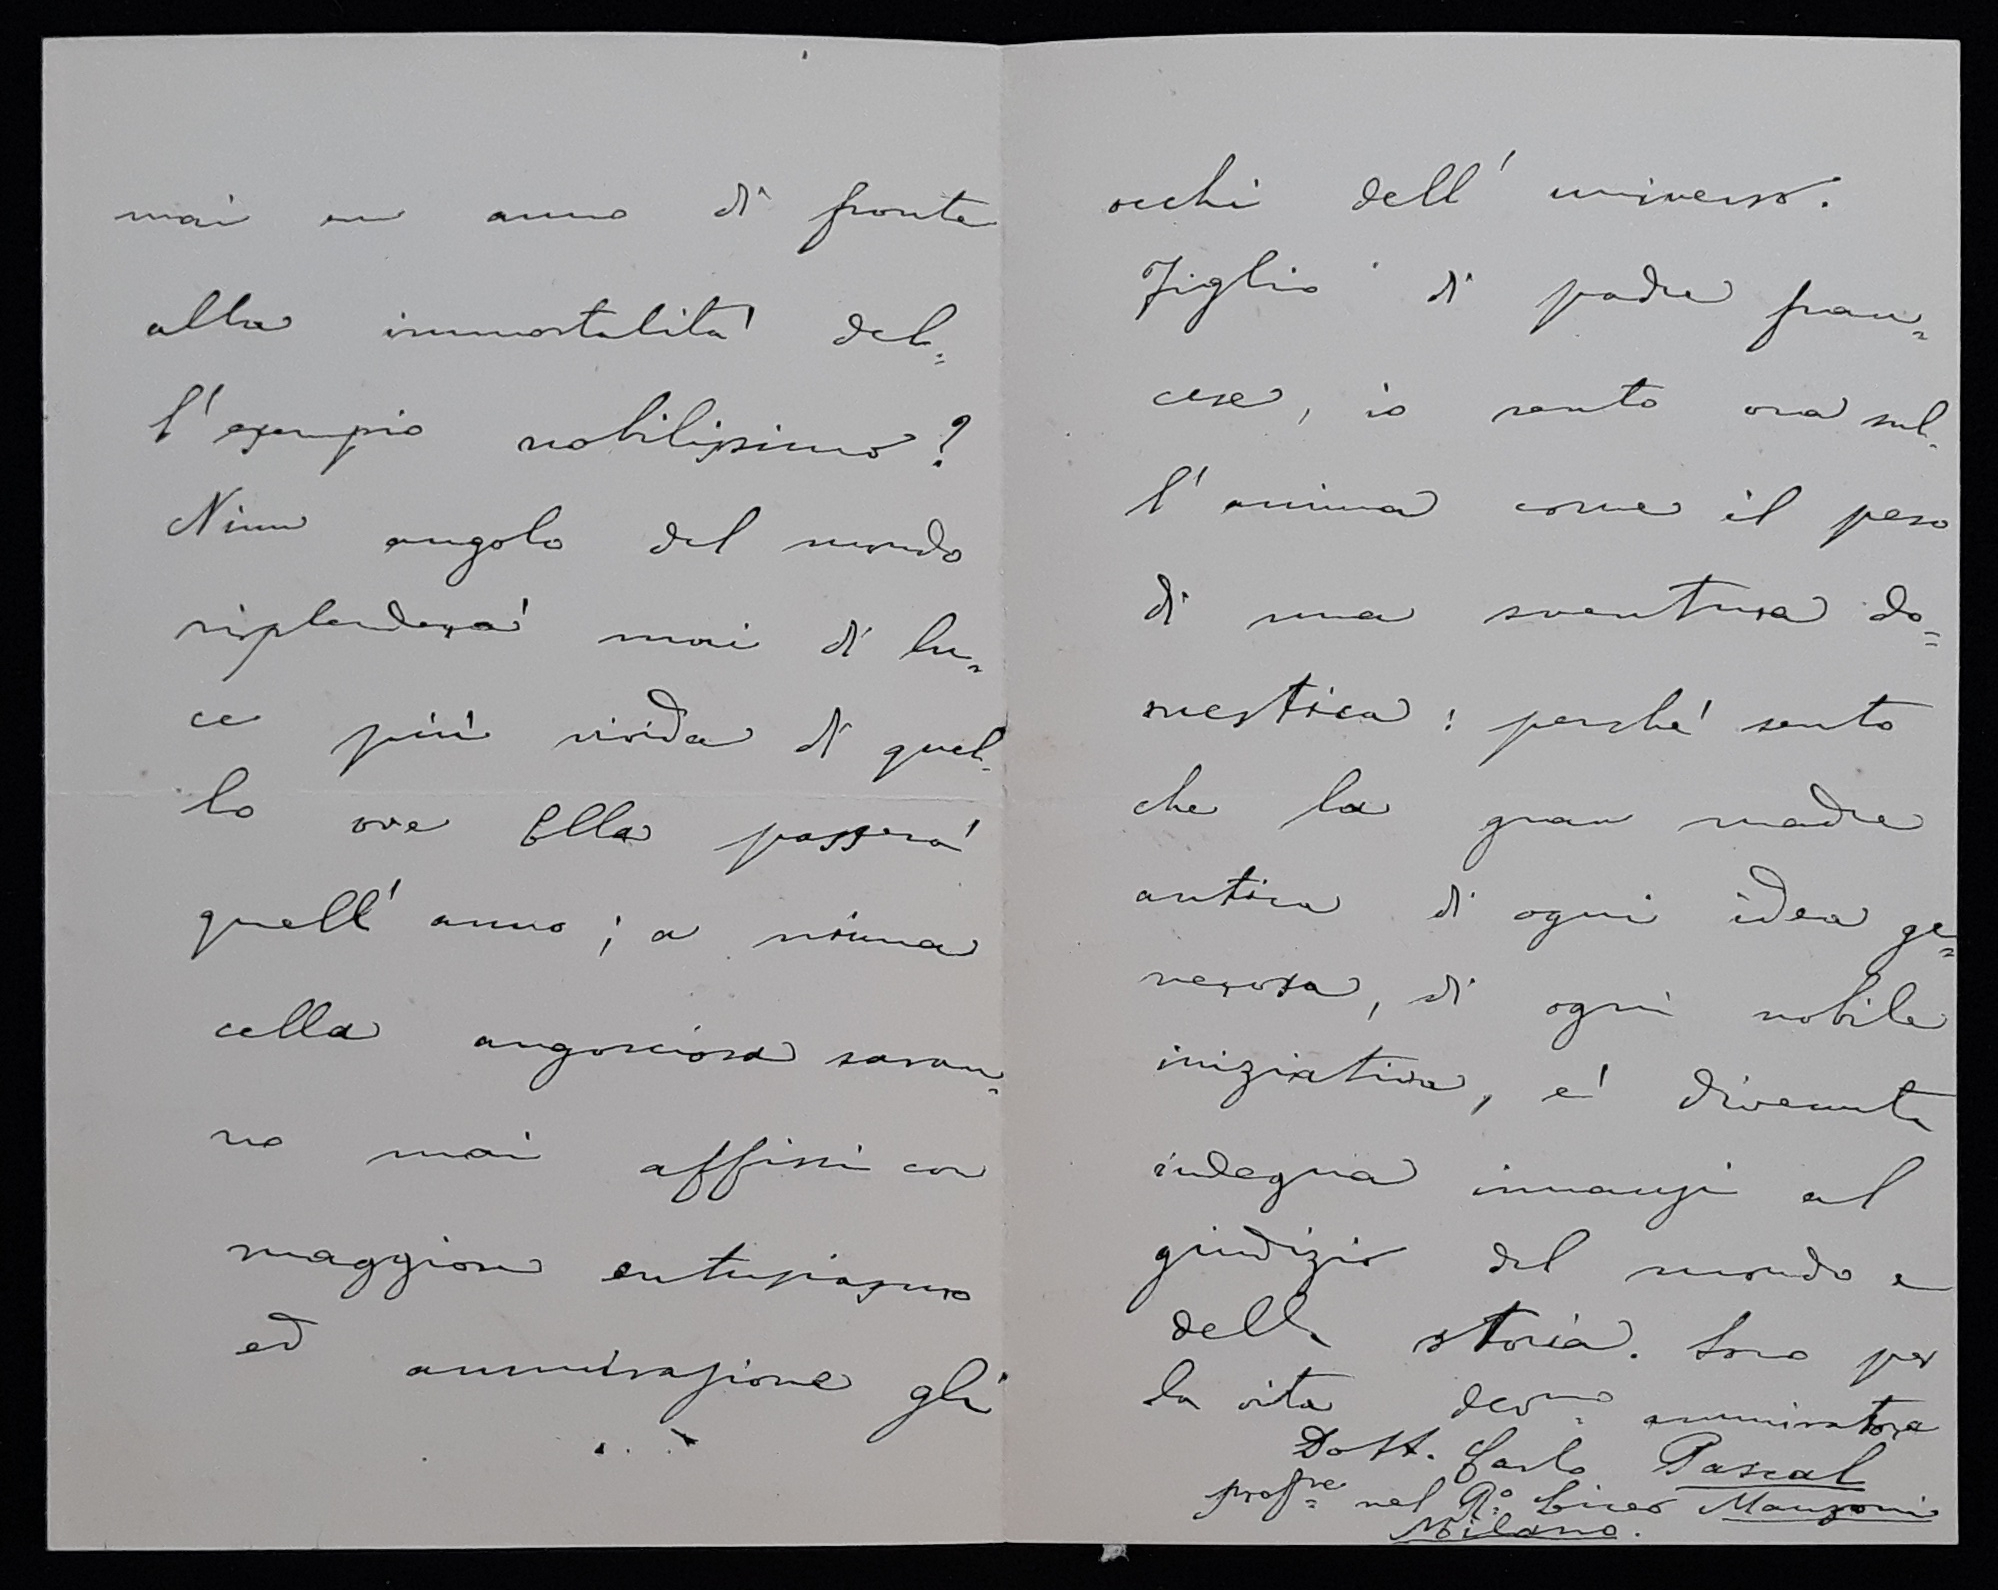 mai un anno di fronte
alla immortalità del=
l'esempio nobilissimo?
Niun angolo del mondo
risplenderà mai di lu=
ce più vivida di quel=
lo ove Ella passerà
quell'anno; a niuna
cella angosciosa saran=
no mai affissi con
maggiore entusiasmo
ed ammirazione gli
occhi dell'universo.
Figlio di padre fran=
cese, io sento ora sul=
l'anima come il peso
di una sventura do=
mestica: perché sento
che la gran madre
antica di ogni idea ge=
nerosa, di ogni nobile
iniziativa, è divenuta
indegna innanzi al
giudizio del mondo e
della storia. Sono per
la vita devmo ammiratore
Dott. Carlo Pascal
profre nel Ro Liceo Manzoni
Milano.